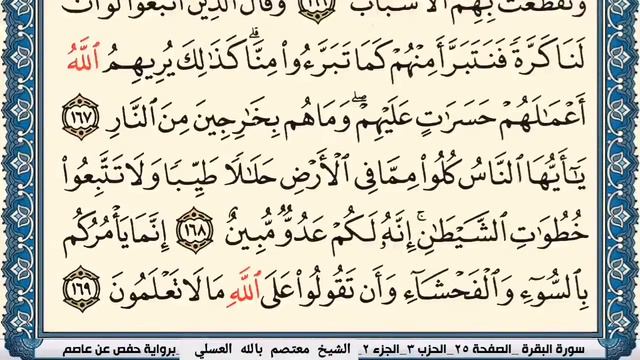 وَتَقَطَّعَتْ بِهِمُ ٱلْأَسْبَابُ ١٦٦ وَقَالَ ٱلَّذِينَ ٱتَّبَعُوا۟ لَوْ أَنَّ
لَنَا كَرَّةً فَنَتَبَرَّأَ مِنْهُمْ كَمَا تَبَرَّءُوا۟ مِنَّا ۗ كَذَٰلِكَ يُرِيهِمُ ٱللَّهُ
أَعْمَٰلَهُمْ حَسَرَٰتٍ عَلَيْهِمْ ۖ وَمَا هُم بِخَٰرِجِينَ مِنَ ٱلنَّارِ ١٦٧
يَٰٓأَيُّهَا ٱلنَّاسُ كُلُوا۟ مِمَّا فِى ٱلْأَرْضِ حَلَٰلًا طَيِّبًا وَلَا تَتَّبِعُوا۟
خُطُوَٰتِ ٱلشَّيْطَٰنِ ۚ إِنَّهُۥ لَكُمْ عَدُوٌّ مُّبِينٌ ١٦٨ إِنَّمَا يَأْمُرُكُم
بِٱلسُّوٓءِ وَٱلْفَحْشَآءِ وَأَن تَقُولُوا۟ عَلَى ٱللَّهِ مَا لَا تَعْلَمُونَ ١٦٩
سورة البقرة _الصفحة ٢٥ _الحزب ٣ _الجزء ٢ الشيخ معتصم بالله العسلي برواية حفص عن عاصم